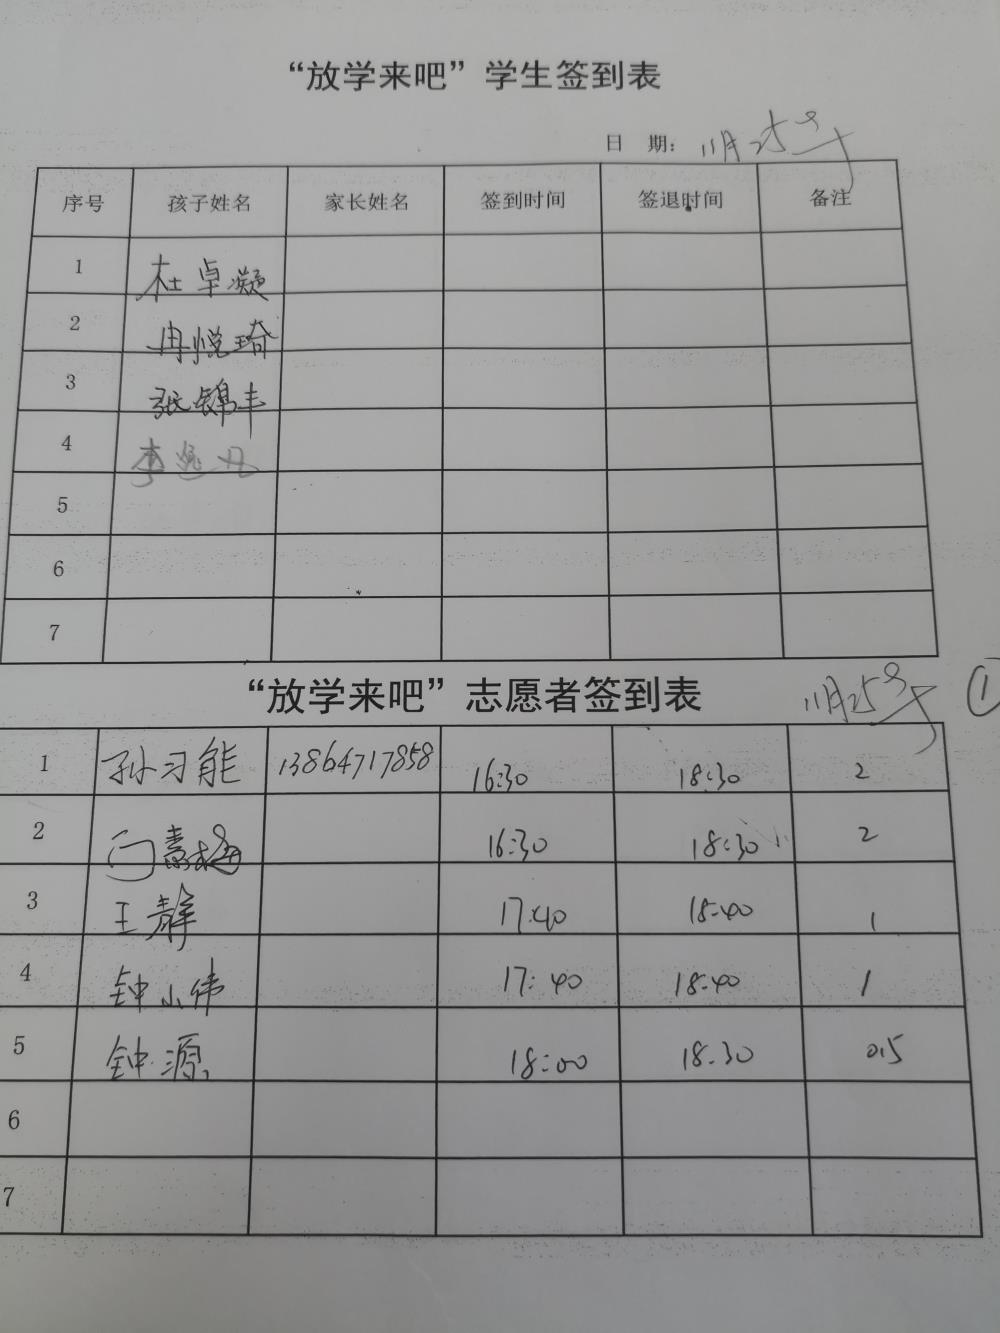 “放学来吧”学生签到表
日 期： 11月25号
序号 孩子姓名 家长姓名 签到时间 签退时间 备注
1 杜卓凝
2 冉悦琦
3 张锦丰
4 李逸凡
5
6
7
“放学来吧”志愿者签到表 11月25号 ①
1 孙习能 13864717858 16:30 18:30 2
2 门素梅 16:30 18:30 2
3 王静 17:40 18:40 1
4 钟小伟 17:40 18:40 1
5 钟源 18:00 18:30 0.5
6
7